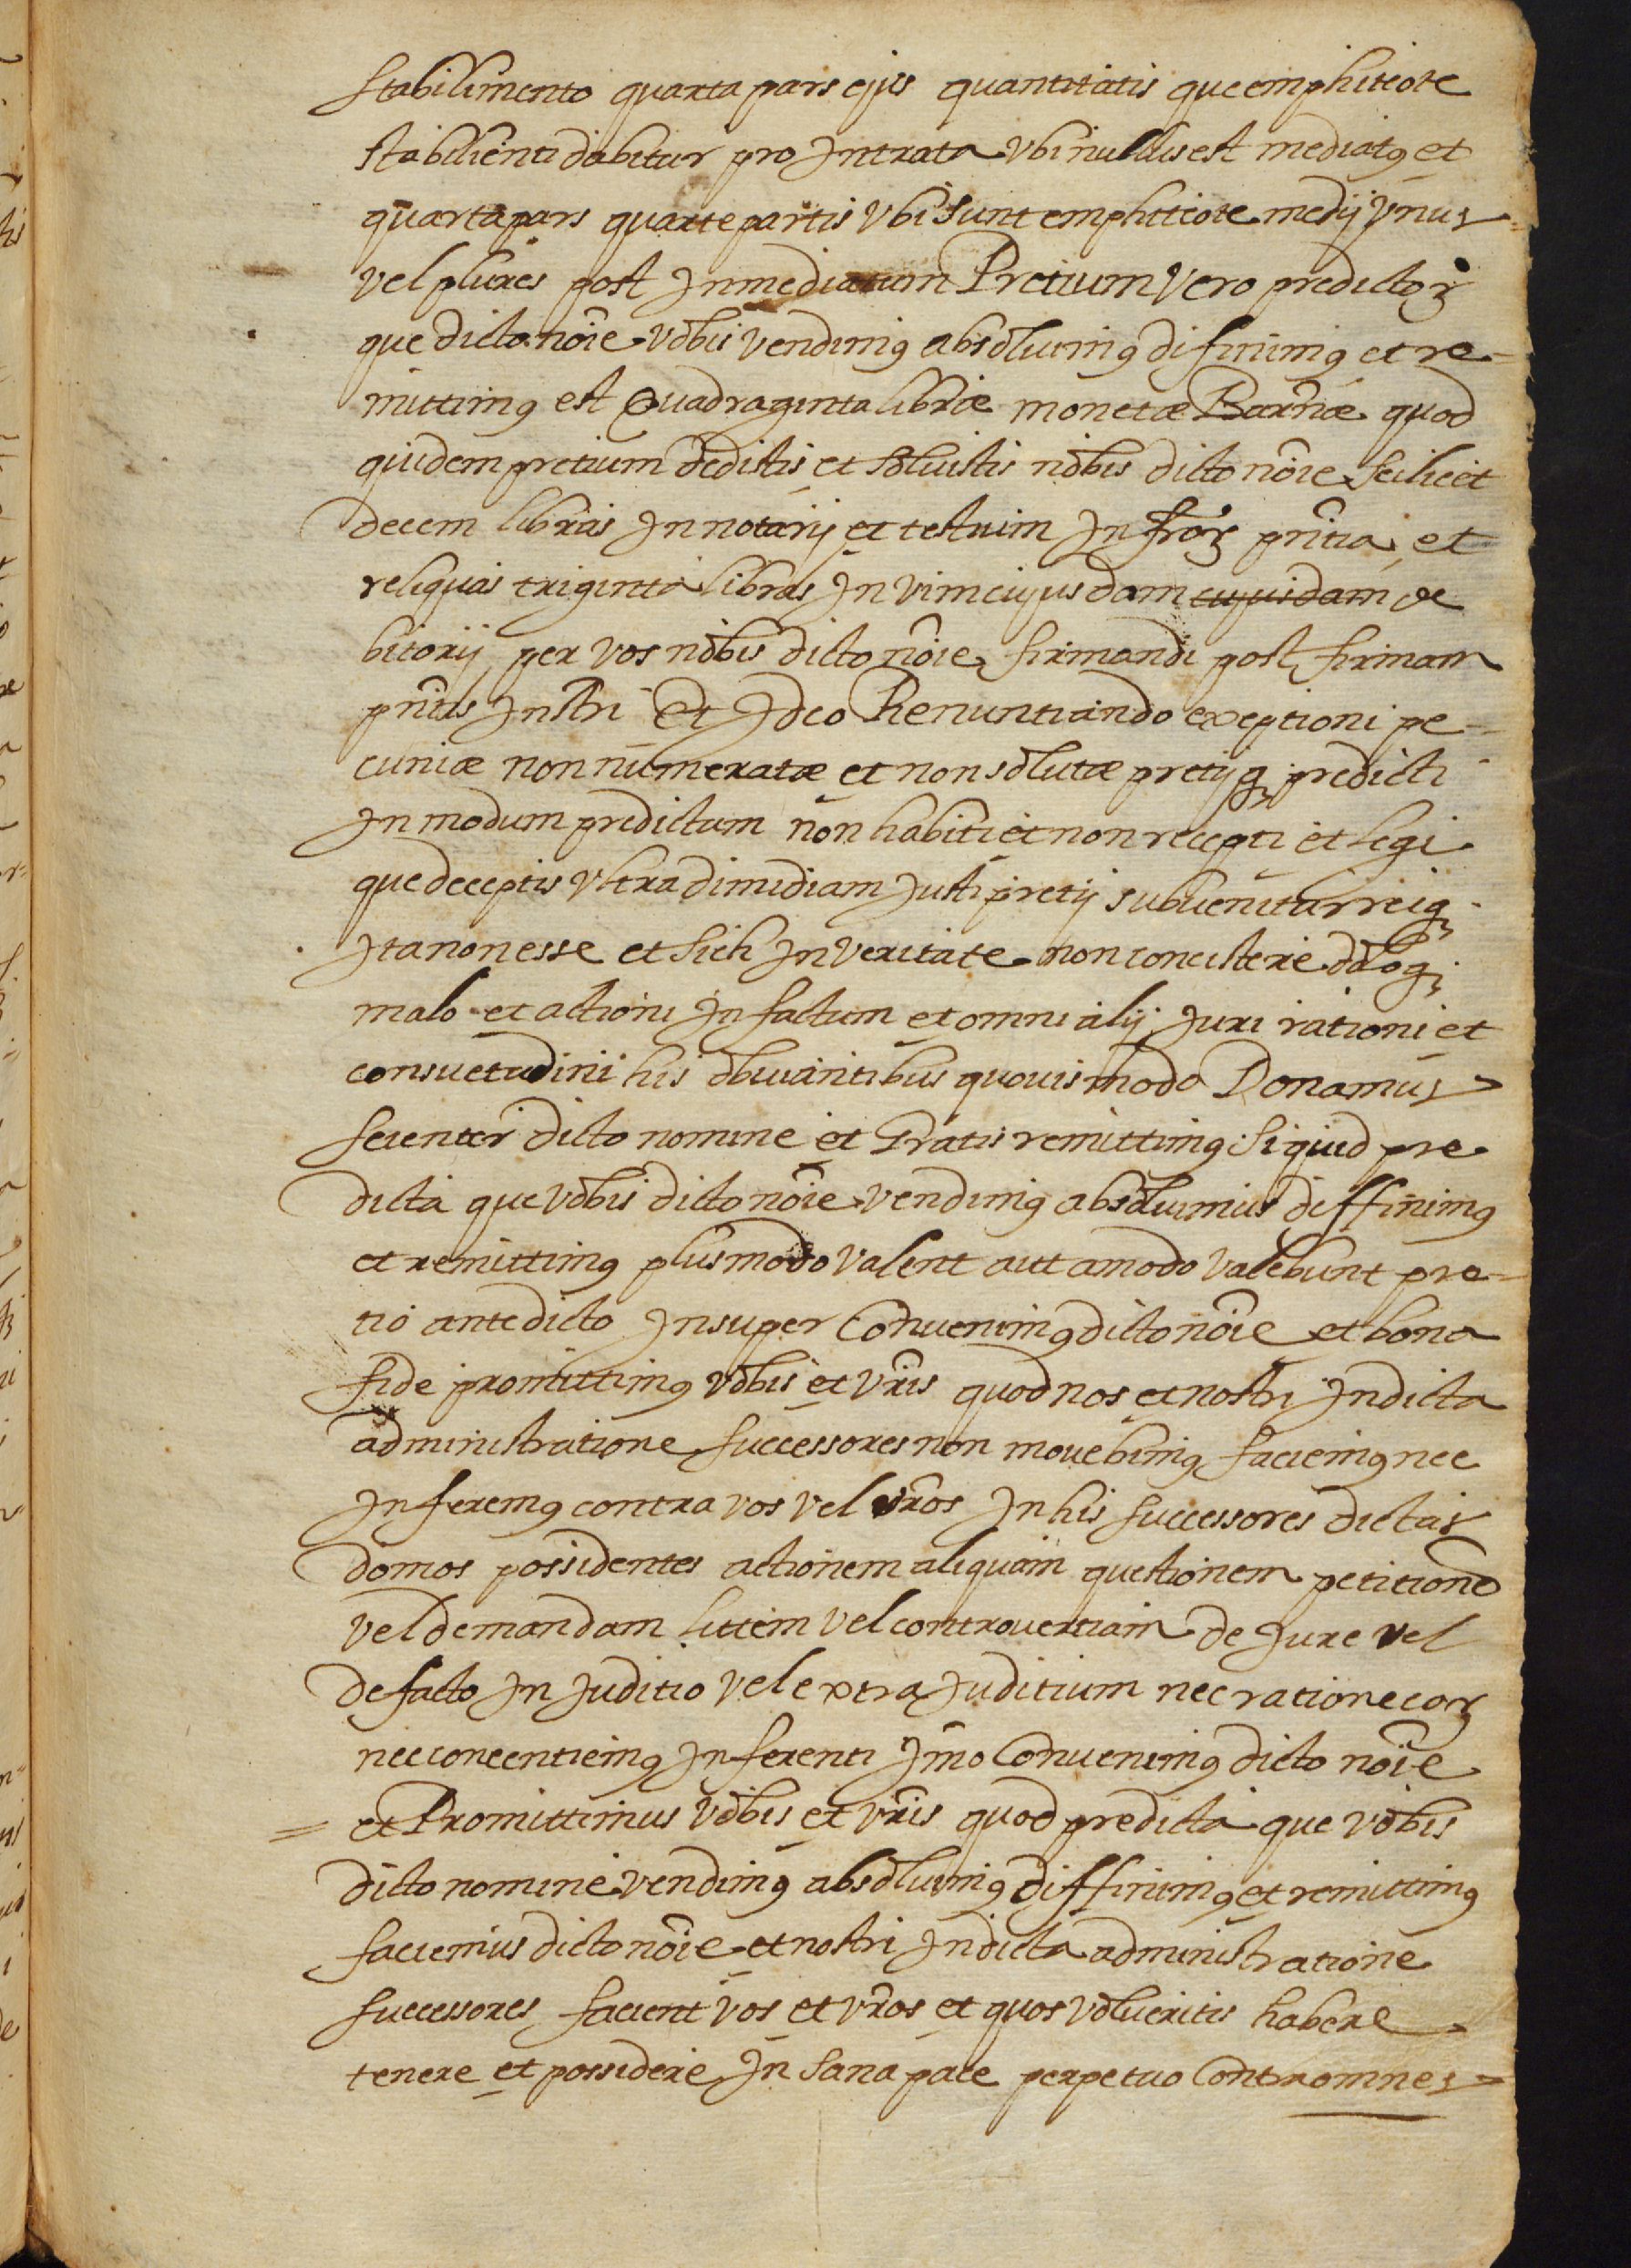 stabilimento quarta pars ejus quantitatis que emphiteote
stabilienti dabitur pro Intrata Vbi nullus est mediatꝰ et
quarta pars quarte partis Vbi sunt emphiteote medij Vnus
vel plures post Inmediatum Pretium Vero predictoꝝ
que dicto noïe Vobis vendimꝰ absoluimꝰ difinimꝰ et re-
mittimꝰ est Quadraginta libræ monetæ Barnæ quod
quidem pretium dedistis et soluistis nobis dicto noïe scilicet
decem libras In notarij et testium Infroꝝ pntia et
reliquas triginta libras In vim cujusdam cujusdam de
bitorij per vos nobis dicto noïe firmandi post firmam
pntis Instri Et Ideo Renuntiando exeptioni pe-
cuniæ non numeratæ et non solutæ pretijqꝫ predicti
In modum predictum non habiti et non recepti et legi
que deceptis Vltra dimidiam Justi pretij subuenitur reiqꝫ
Ita non esse et sich In veritate non concistere doloqꝫ
malo et actioni In factum et omni alij Juri rationi et
consuetudini his obuiantibus quouis modo Donamus
scienter dicto nomine et Gratis remittimꝰ Si quid pre
dicta que vobis dicto noïe vendimꝰ absoluimus diffinimꝰ
et remittimꝰ plus modo valent aut amodo valebunt pre-
tio antedicto Insuper Conuenimꝰ dicto noïe et bona
fide promittimꝰ vobis et vris quod nos et nostri In dicta
administratione successores non mouebimꝰ faciemꝰ nec
Inferemꝰ contra vos vel vros In his successores dictas
domos possidentes actionem aliquam questionem petitione
vel demandam littem vel controuertiam de Jure vel
de facto In Juditio vel extra Juditium nec ratione eoꝝ
nec concentiemꝰ Inferenti Imo Conuenimꝰ dicto noïe
= et Promittimus Vobis et vris quod predicta que vobis
dicto nomine vendimꝰ absoluimꝰ diffinimꝰ et remittimꝰ
faciemus dicto noïe et nostri In dicta administratione
successores facient vos et vros et quos volueritis habere
tenere et possidere In sana pace perpetuo Contra omnes